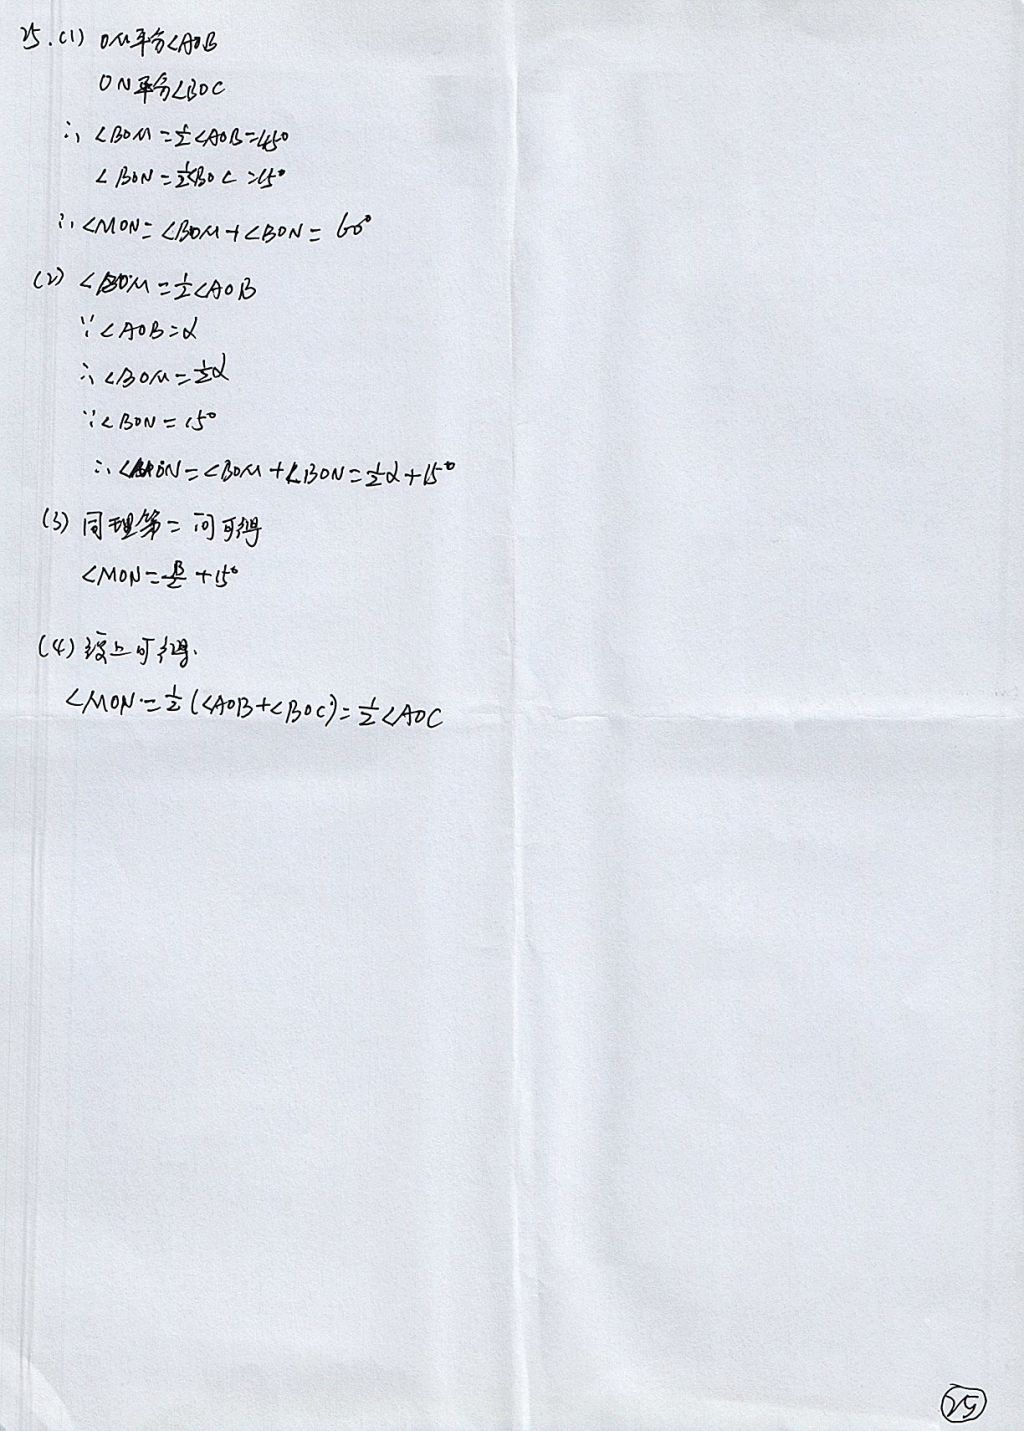 25.(1) OM平分∠AOB
ON平分∠BOC
∴ ∠BOM=½∠AOB=45°
∠BON=½∠BOC=15°
∴ ∠MON=∠BOM+∠BON=60°
(2) ∠BOM=½∠AOB
∵∠AOB=α
∴∠BOM=½α
∵∠BON=15°
∴∠MON=∠BOM+∠BON=½α+15°
(3) 同理第二问可得
∠MON=β/2+15°
(4) 综上可得.
∠MON=½(∠AOB+∠BOC)=½∠AOC
25